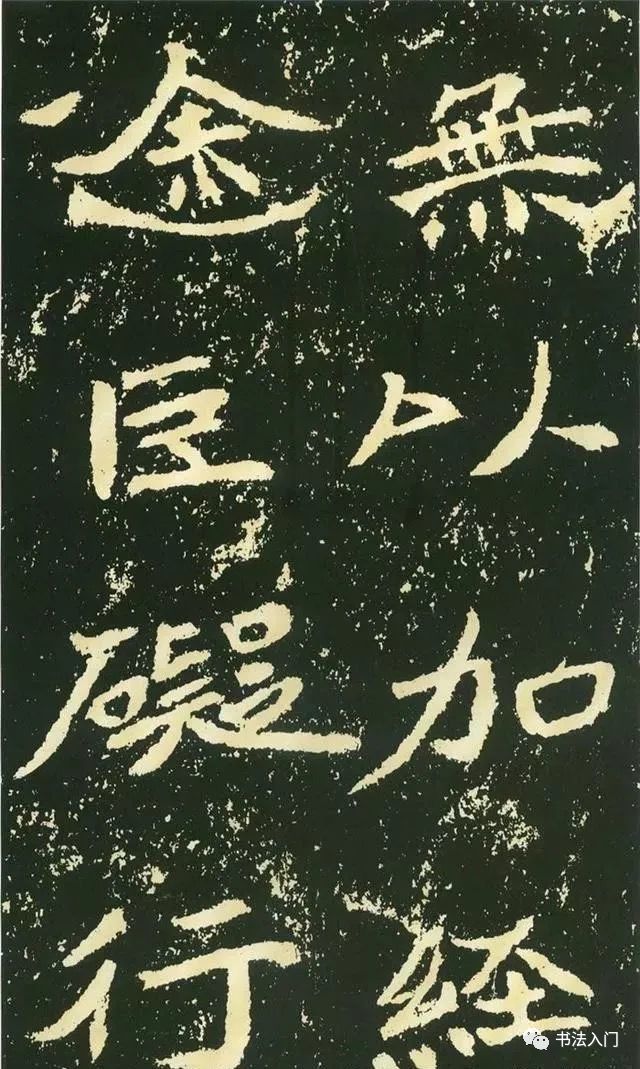 無以加経
途巨礙行
书法入门